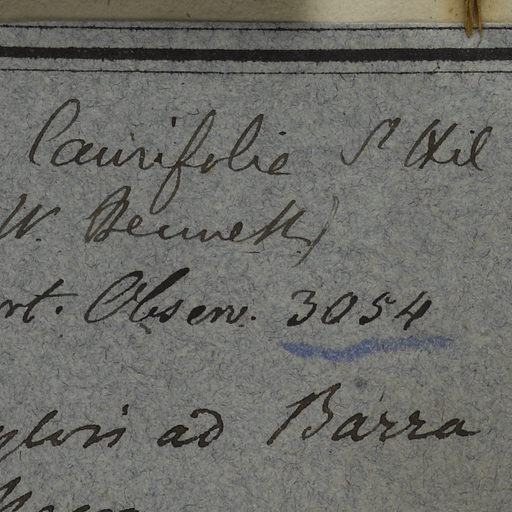 laurifolie St Hil
W. Bennett)
rt. Observ. 3054
ylvis ad Barra